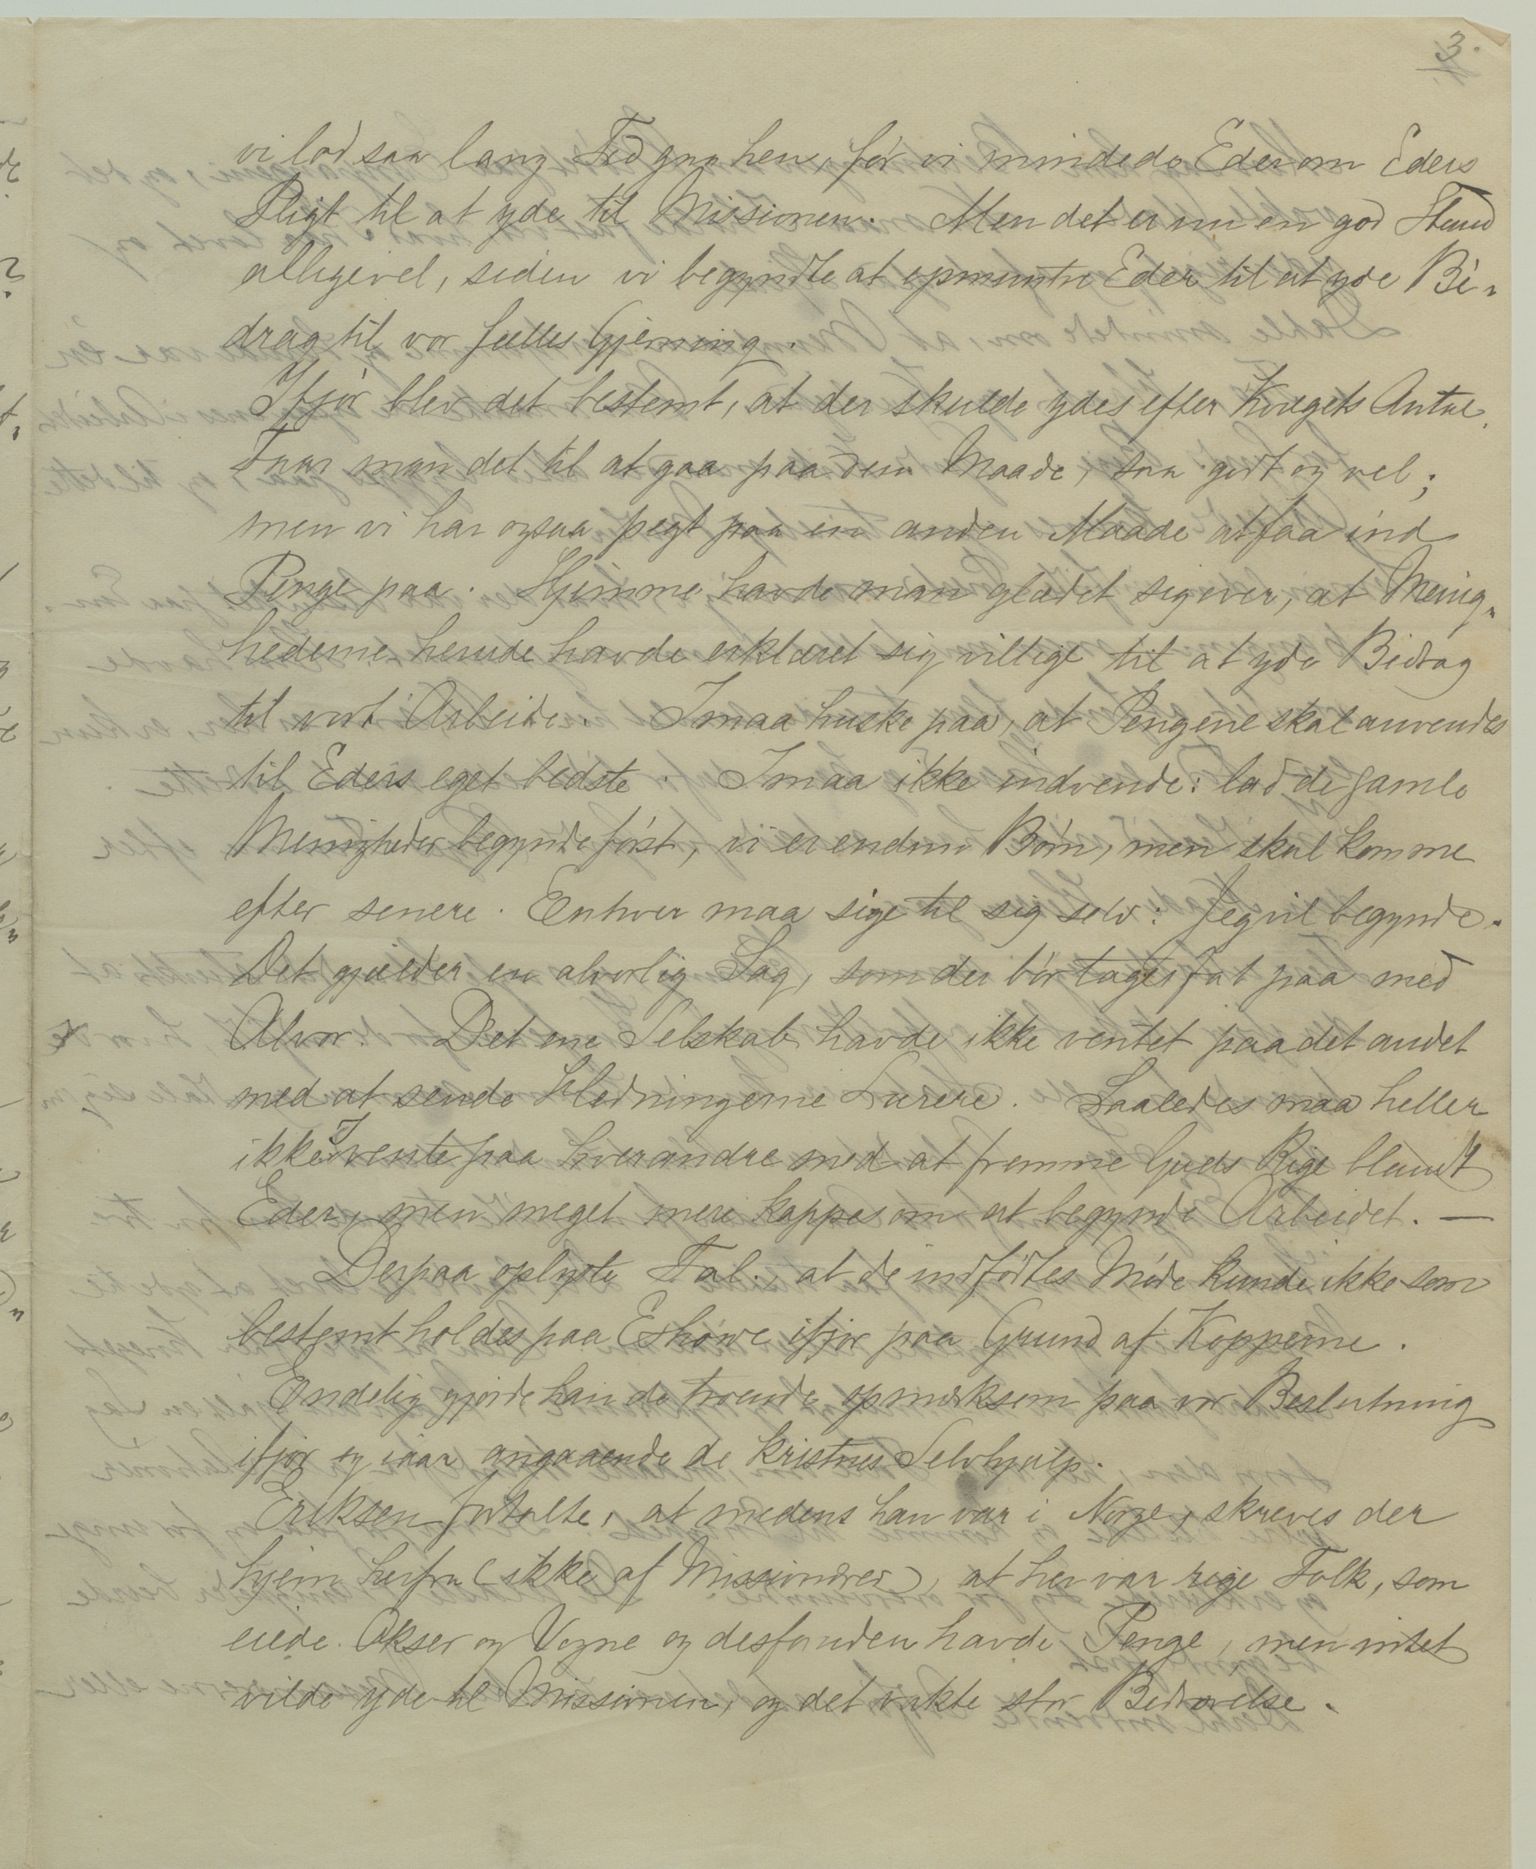 3.
vi lod saa lang Tid gaa hen, før vi mindede Eder om Eders
Pligt til at yde til Missionen. Men det er nu en god Stund
alligevel, siden vi begyndte at opmuntre Eder til at yde Bi-
drag til vor fælles Gjerning.
Ifjor blev det bestemt, at der skulde ydes efter Kvægets Antal.
Faar man det til at gaa paa den Maade, saa godt og vel;
men vi har ogsaa pegt paa en anden Maade at faa ind
Penge paa. Hjemme havde man glædet sig over, at Menig-
hederne herude havde erklæret sig villige til at yde Bidrag
til vort Arbeide. I maa huske paa, at Pengene skal anvendes
til Eders eget bedste. I maa ikke indvende: lad de gamle
Menigheder begynde først, vi er endnu Børn, men skal komme
efter senere. Enhver maa sige til sig selv: Jeg vil begynde.
Det gjælder en alvorlig Sag, som der bør tages fat paa med
Alvor. Det ene Selskab havde ikke ventet paa det andet
med at sende Hedningerne Lærere. Saaledes maa heller
ikke I vente paa hverandre med at fremme Guds Rige blandt
Eder, men meget mere kappes om at begynde Arbeidet. —
Derpaa oplyste Tal. at de indfødtes Møde kunde ikke som
bestemt holdes paa Eshowe ifjor paa Grund af Kopperne.
Endelig gjorde han de troende opmærksom paa vor Beslutning
ifjor og iaar angaaende de kristnes Selvhjælp.
Eriksen fortalte, at medens han var i Norge, skreves der
hjem herfra (ikke af Missionærer), at her var rige Folk, som
eiede Okser og Vogne og desforuden havde Penge, men intet
vilde yde til Missionen, og det vakte stor Bedrøvelse.